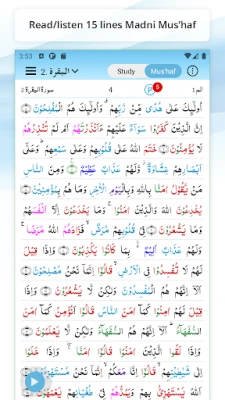 Read/listen 15 lines Madni Mus'haf
3:53
2. البقرة Study Mus'haf
سورة البقرة 2 4 P 5 الم 1
أُولَٰئِكَ عَلَىٰ هُدًى مِّن رَّبِّهِمْ ۖ وَأُولَٰئِكَ هُمُ الْمُفْلِحُونَ ٥
إِنَّ الَّذِينَ كَفَرُوا سَوَاءٌ عَلَيْهِمْ أَأَنذَرْتَهُمْ أَمْ لَمْ تُنذِرْهُمْ
لَا يُؤْمِنُونَ ٦ خَتَمَ اللَّهُ عَلَىٰ قُلُوبِهِمْ وَعَلَىٰ سَمْعِهِمْ ۖ وَعَلَىٰ
أَبْصَارِهِمْ غِشَاوَةٌ ۖ وَلَهُمْ عَذَابٌ عَظِيمٌ ٧ وَمِنَ النَّاسِ
مَن يَقُولُ آمَنَّا بِاللَّهِ وَبِالْيَوْمِ الْآخِرِ وَمَا هُم بِمُؤْمِنِينَ ٨
يُخَادِعُونَ اللَّهَ وَالَّذِينَ آمَنُوا وَمَا يَخْدَعُونَ إِلَّا أَنفُسَهُمْ
وَمَا يَشْعُرُونَ ٩ فِي قُلُوبِهِم مَّرَضٌ فَزَادَهُمُ اللَّهُ مَرَضًا ۖ
وَلَهُمْ عَذَابٌ أَلِيمٌ بِمَا كَانُوا يَكْذِبُونَ ١٠ وَإِذَا قِيلَ
لَهُمْ لَا تُفْسِدُوا فِي الْأَرْضِ قَالُوا إِنَّمَا نَحْنُ مُصْلِحُونَ ١١
أَلَا إِنَّهُمْ هُمُ الْمُفْسِدُونَ وَلَٰكِن لَّا يَشْعُرُونَ ١٢ وَإِذَا
قِيلَ لَهُمْ آمِنُوا كَمَا آمَنَ النَّاسُ قَالُوا أَنُؤْمِنُ كَمَا آمَنَ
السُّفَهَاءُ ۗ أَلَا إِنَّهُمْ هُمُ السُّفَهَاءُ وَلَٰكِن لَّا يَعْلَمُونَ ١٣
وَإِذَا لَقُوا الَّذِينَ آمَنُوا قَالُوا آمَنَّا وَإِذَا خَلَوْا
إِلَىٰ شَيَاطِينِهِمْ قَالُوا إِنَّا مَعَكُمْ إِنَّمَا نَحْنُ مُسْتَهْزِئُونَ ١٤
اللَّهُ يَسْتَهْزِئُ بِهِمْ وَيَمُدُّهُمْ فِي طُغْيَانِهِمْ يَعْمَهُونَ